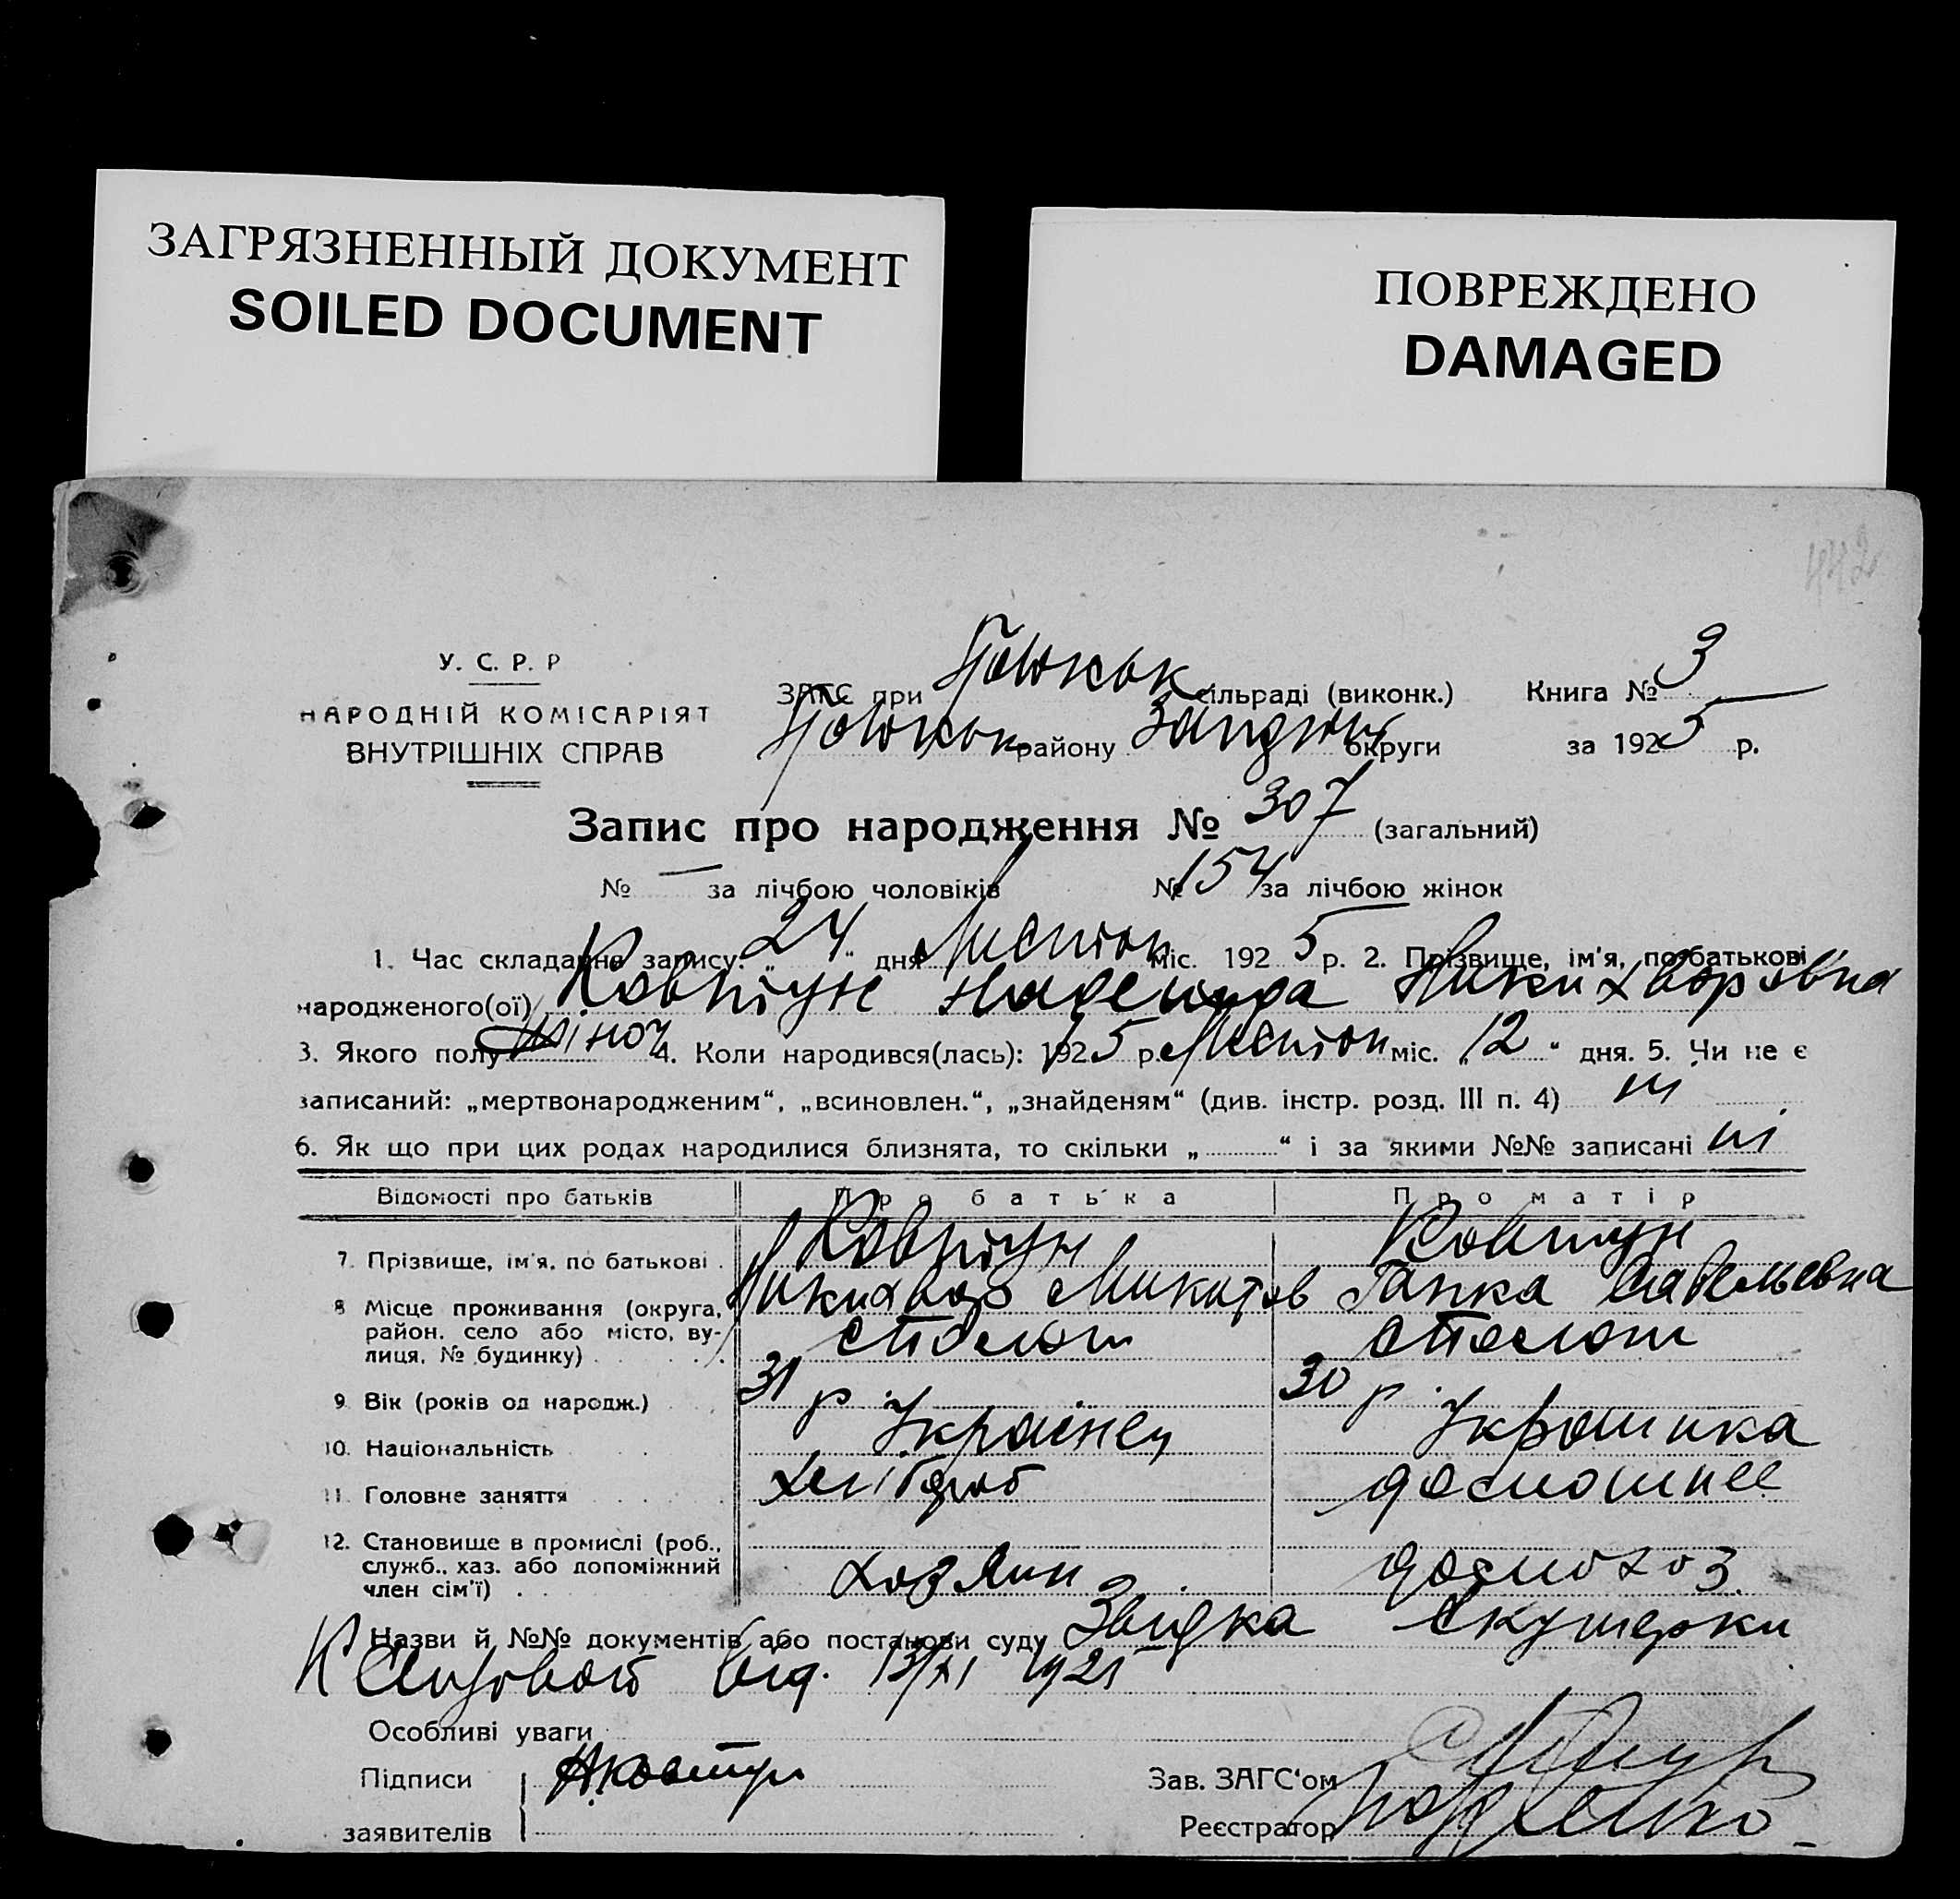 ЗАГРЯЗНЕННЫЙ ДОКУМЕНТ
SOILED DOCUMENT
ПОВРЕЖДЕНО
DAMAGED
442
У. С. Р. Р
НАРОДНІЙ КОМІСАРІЯТ
ВНУТРІШНІХ СПРАВ
ЗАГС при сільраді (виконк.)
району округи
Книга № 3
за 1925 р.
Запис про народження № 307 (загальний)
№ — за лічбою чоловіків № 154 за лічбою жінок
1. Час складання запису: „24“ дня Листоп міс. 1925 р. 2. Прізвище, ім'я, по батькові
народженого(ої) Ковтун Надежда Никихворовна
3. Якого полу жіноч 4. Коли народився(лась): 1925 р. Листоп міс. „12“ дня. 5. Чи не є
записаний: „мертвонародженим“, „всиновлен.“, „знайденям“ (див. інстр. розд. III п. 4) ні
6. Як що при цих родах народилися близнята, то скільки „ “ і за якими №№ записані ні
Відомості про батьків Про батька Про матір
7. Прізвище, ім'я, по батькові Ковтун Ковтун
Никихвор Микитов Гапка Савельевна
8 Місце проживання (округа,
район. село або місто, ву-
лиця, № будинку)
9. Вік (років од народж.) 31 р 30 р
10. Національність Українец Украинка
11. Головне заняття хлібороб домашнее
12. Становище в промислі (роб.,
служб.. хаз. або допоміжний
член сім'ї) хозяин домохоз.
Назви й №№ документів або постанови суду Звідка Акушерки
від. 13/XI 1925
Особливі уваги
Підписи Н. Ковтун
заявителів
Зав. ЗАГС'ом
Реєстратор